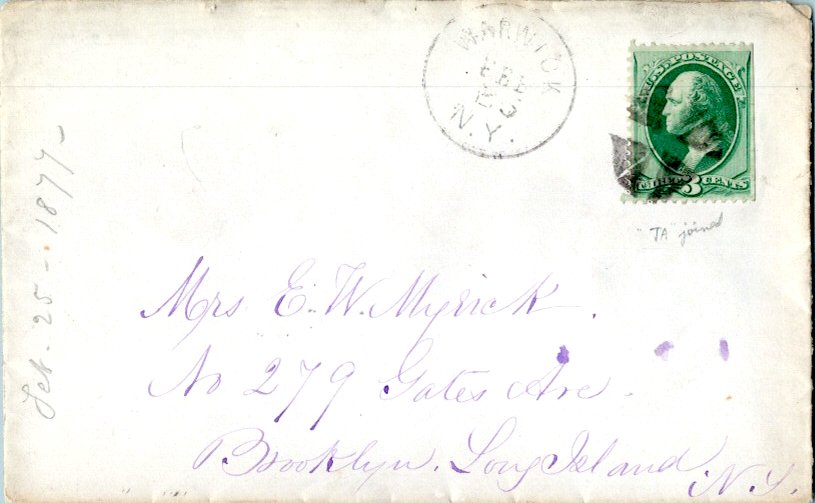 WARWICK
FEB
N.Y.
U.S. POSTAGE
THREE 3 CENTS
"TA" joined
Feb. 25 - 1877 -
Mrs E. W. Myrick.
No 279 Gates Ave.
Brooklyn. Long Island
N.Y.